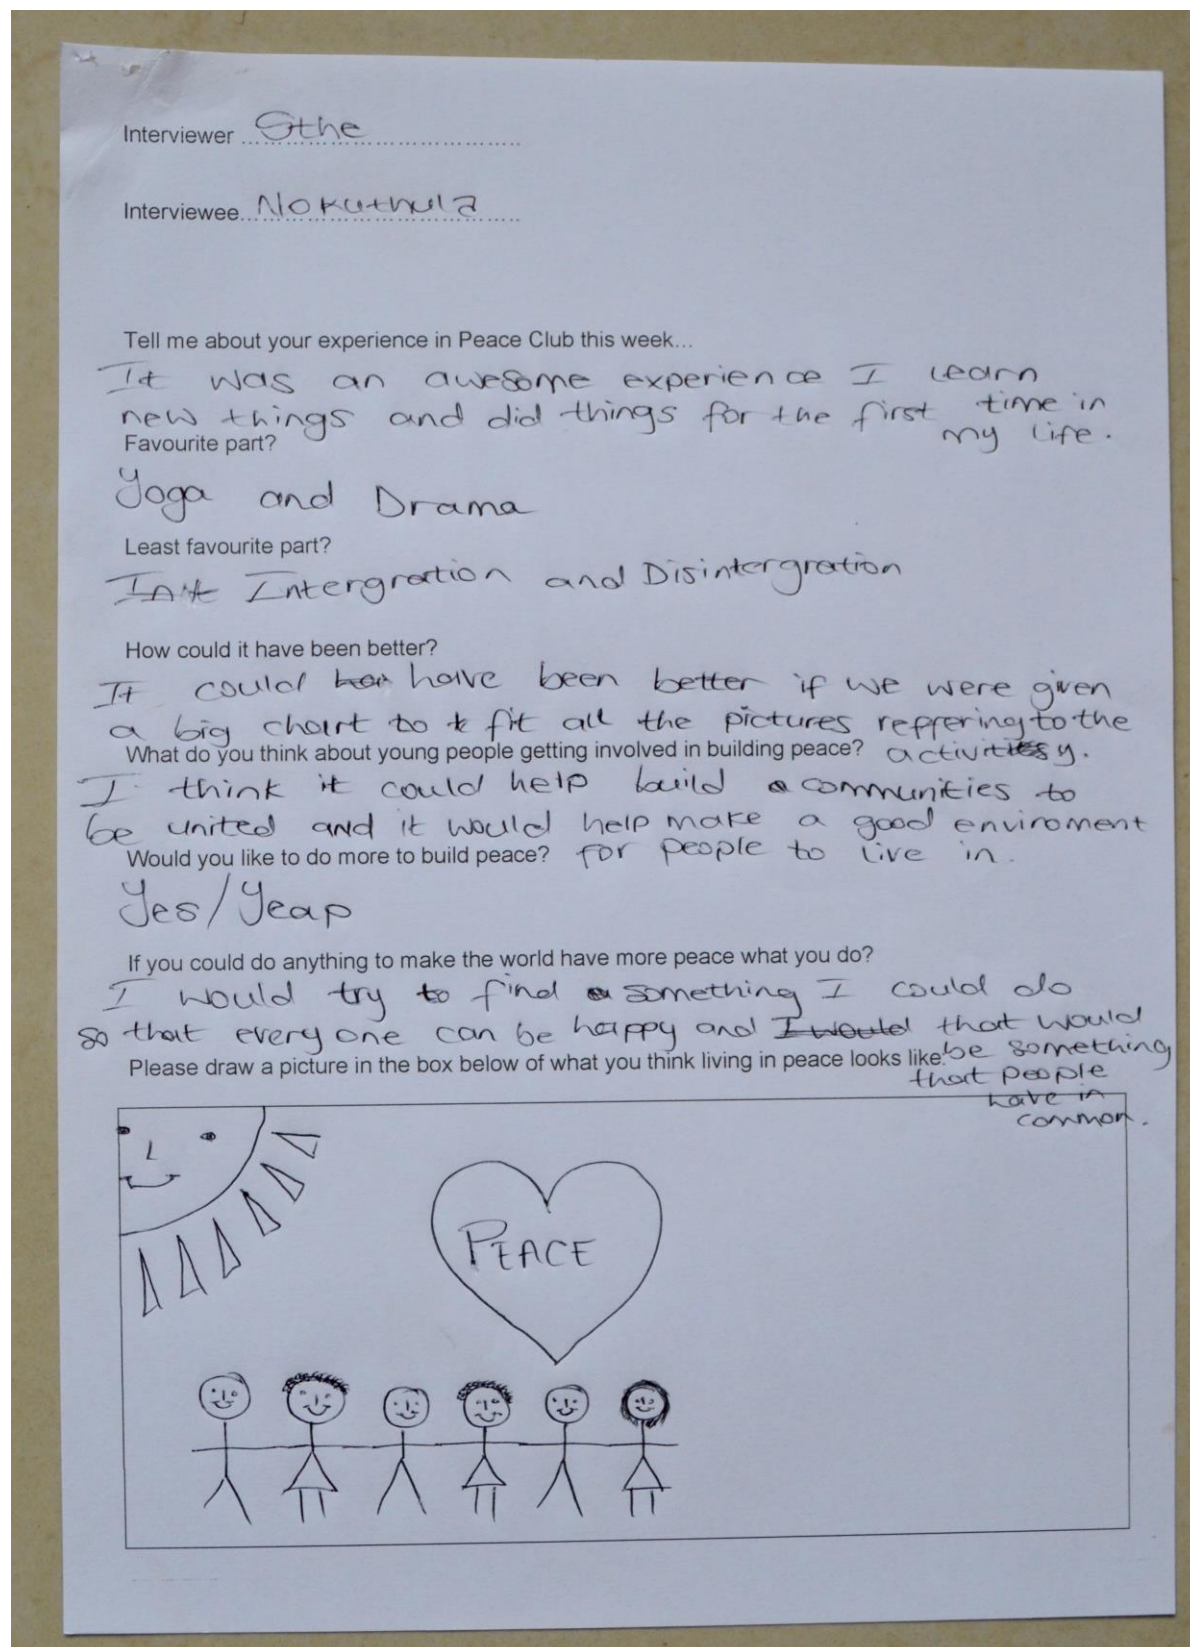 Interviewer Sthe
Interviewee Nokuthula
Tell me about your experience in Peace Club this week...
It was an awesome experience I learn
new things and did things for the first time in
my life.
Favourite part?
Yoga and Drama
Least favourite part?
Intergration and Disintergration
How could it have been better?
It could have been better if we were given
a big chart to fit all the pictures reffering to the
activity.
What do you think about young people getting involved in building peace?
I think it could help build communities to
be united and it would help make a good enviroment
for people to live in.
Would you like to do more to build peace?
Yes/Yeap
If you could do anything to make the world have more peace what you do?
I would try to find something I could do
so that every one can be happy and that would
be something
that people
have in
common.
Please draw a picture in the box below of what you think living in peace looks like.
PEACE